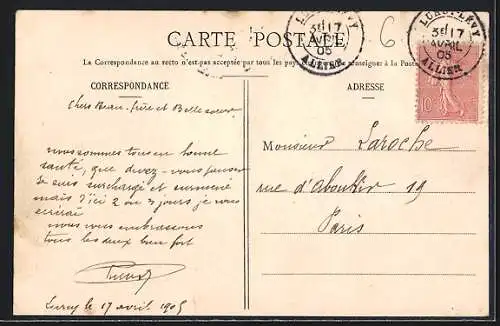 CARTE POSTALE
La Correspondance au recto n'est pas acceptée par tous les pays renseigner à la Poste
CORRESPONDANCE
Chers Beau-frère et Belle soeur
nous sommes tous en bonne
santé, que devez-vous penser
Je suis surchargé et surmené
mais d'ici 2 ou 3 jours je vous
écrirai
nous vous embrassons
tous les deux bien fort
Lurcy le 17 avril 1905
ADRESSE
Monsieur Laroche
rue d'Aboukir 19
Paris
LURCY-LÉVY
17
AVRIL
05
ALLIER
LURCY-LÉVY
17
AVRIL
05
ALLIER
10
6